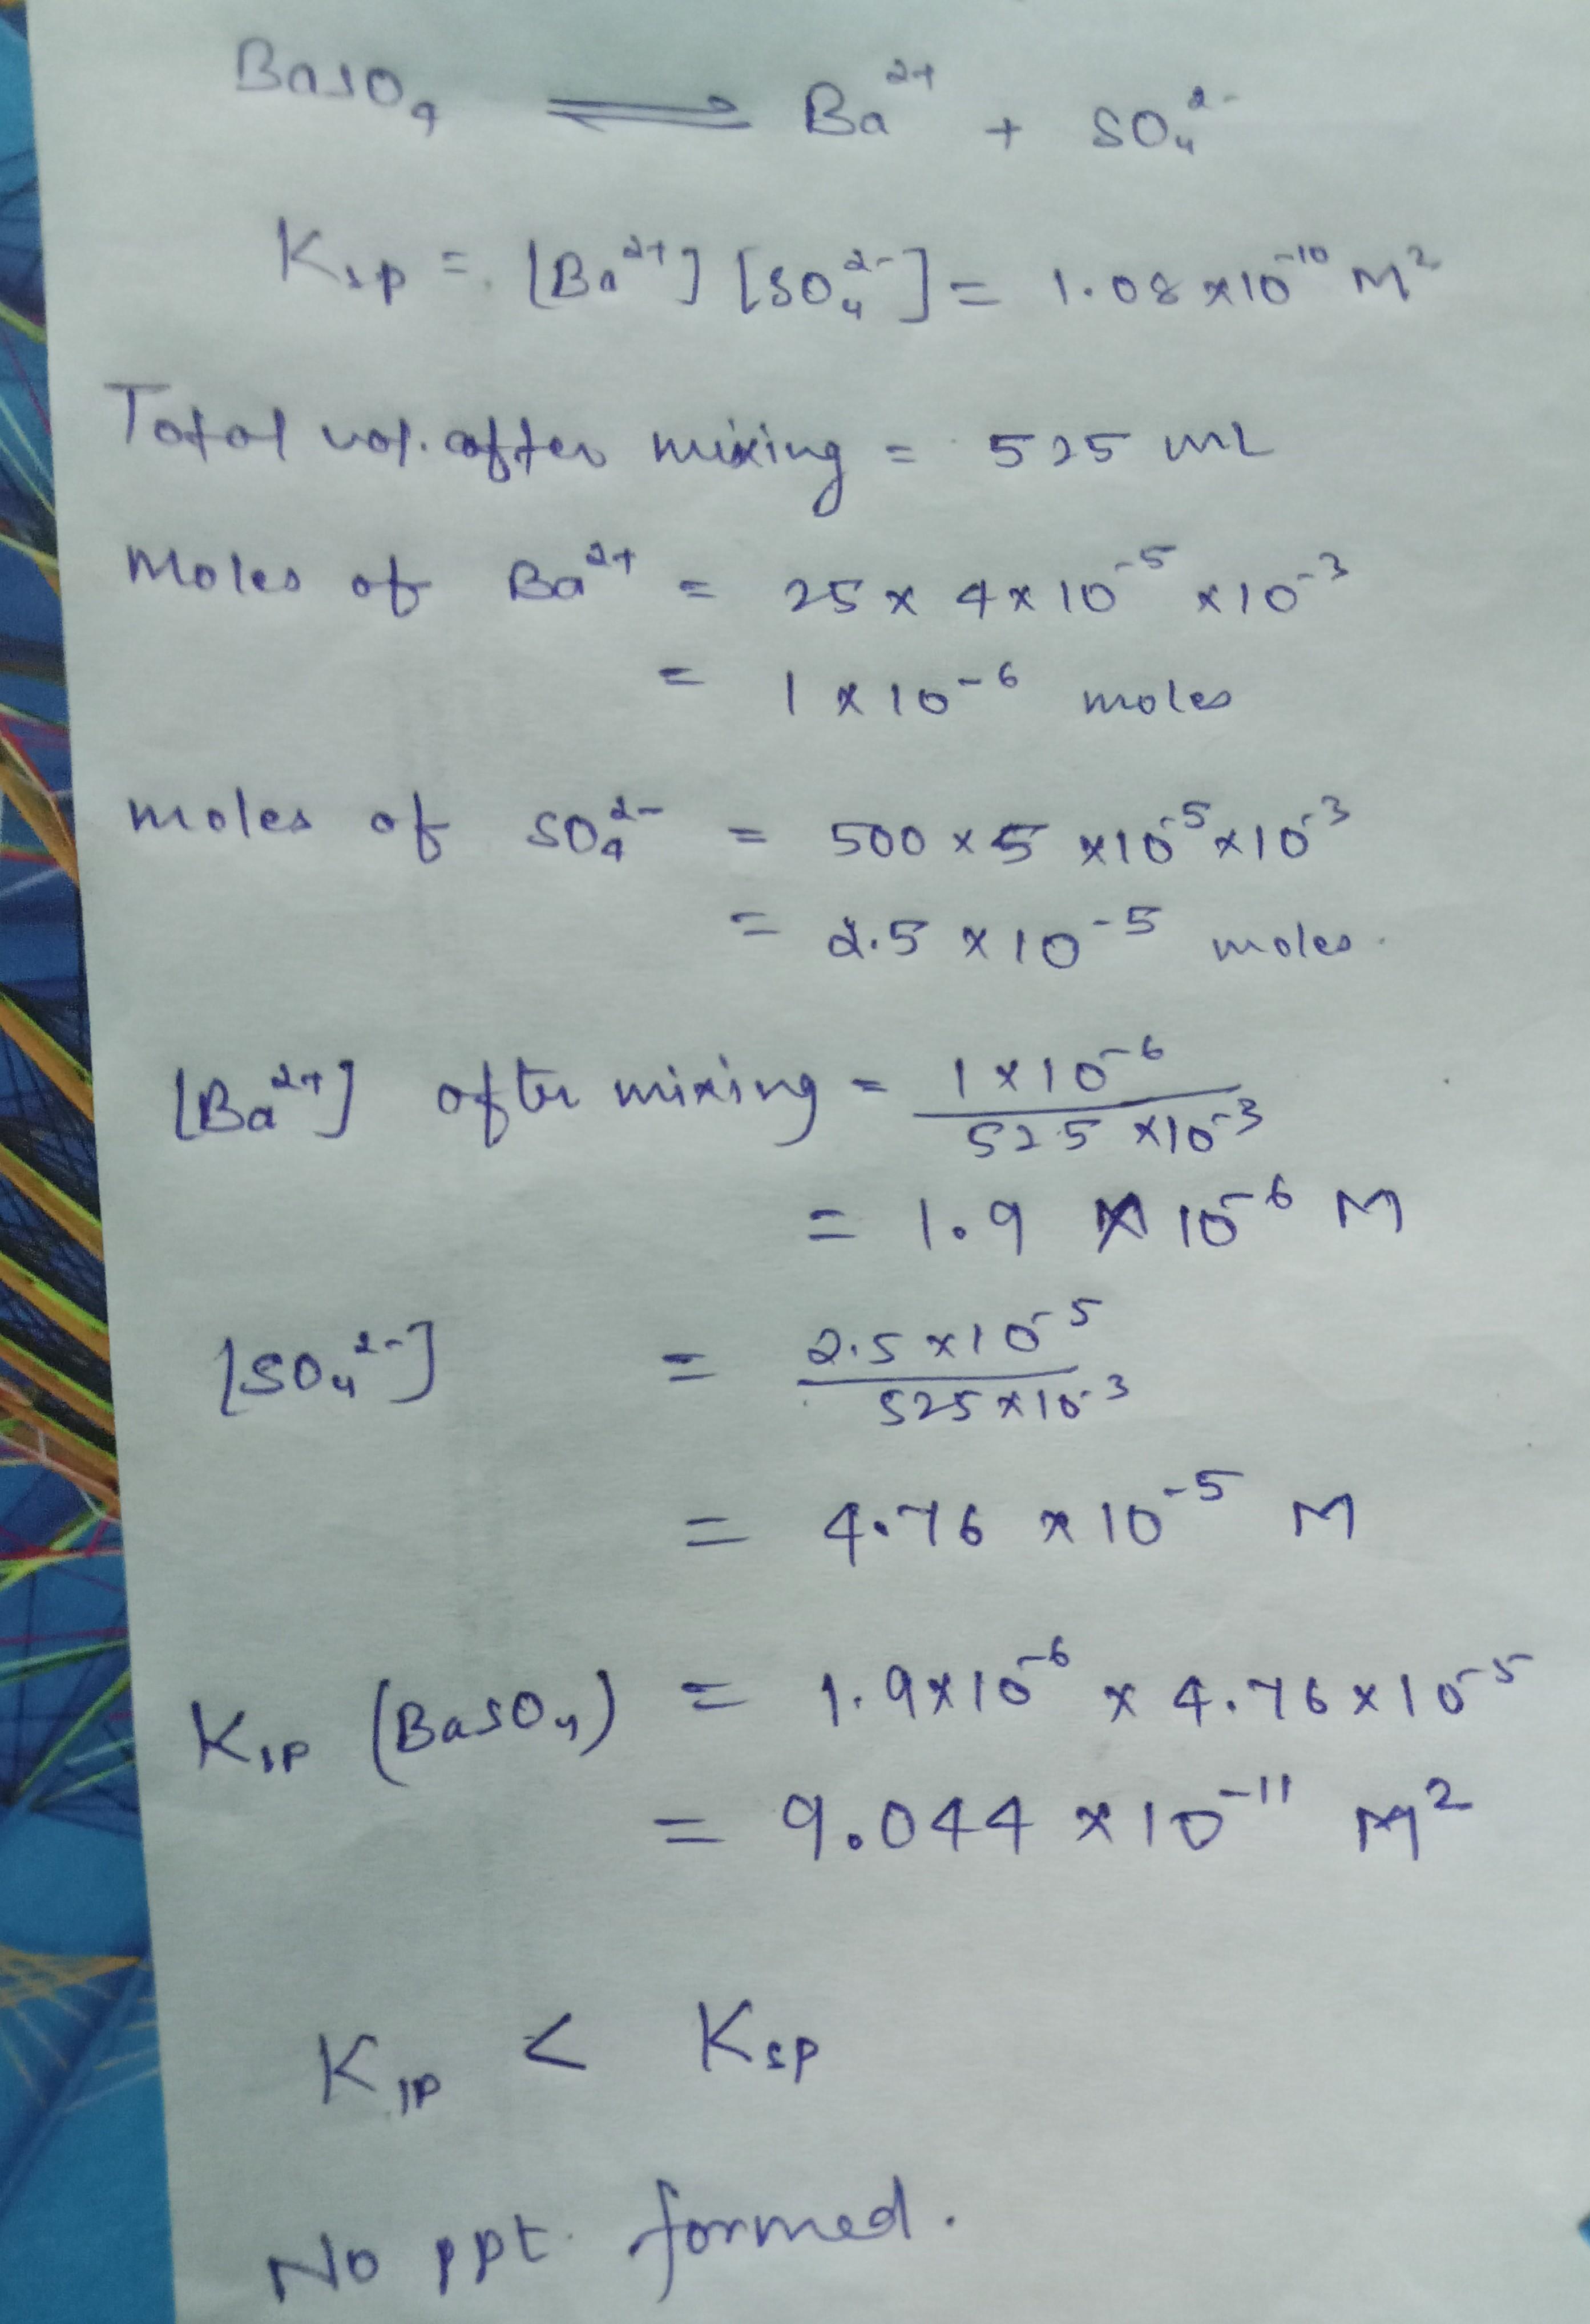 BaSO₄ ⇌ Ba²⁺ + SO₄²⁻
Ksp = [Ba²⁺] [SO₄²⁻] = 1.08 × 10⁻¹⁰ M²
Total vol. after mixing = 525 mL
Moles of Ba²⁺ = 25 × 4 × 10⁻⁵ × 10⁻³
= 1 × 10⁻⁶ moles
moles of SO₄²⁻ = 500 × 5 × 10⁻⁵ × 10⁻³
= 2.5 × 10⁻⁵ moles.
[Ba²⁺] after mixing = 1 × 10⁻⁶ / 525 × 10⁻³
= 1.9 × 10⁻⁶ M
[SO₄²⁻] = 2.5 × 10⁻⁵ / 525 × 10⁻³
= 4.76 × 10⁻⁵ M
KIP (BaSO₄) = 1.9 × 10⁻⁶ × 4.76 × 10⁻⁵
= 9.044 × 10⁻¹¹ M²
KIP < Ksp
No ppt. formed.